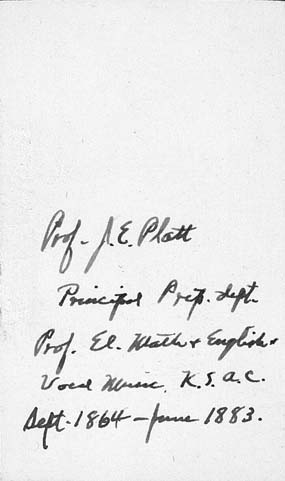 Prof. J. E. Platt
Principal Prep. dept.
Prof. El. Math + English +
Vocal Music. K. S. A. C.
Sept. 1864 - June 1883.